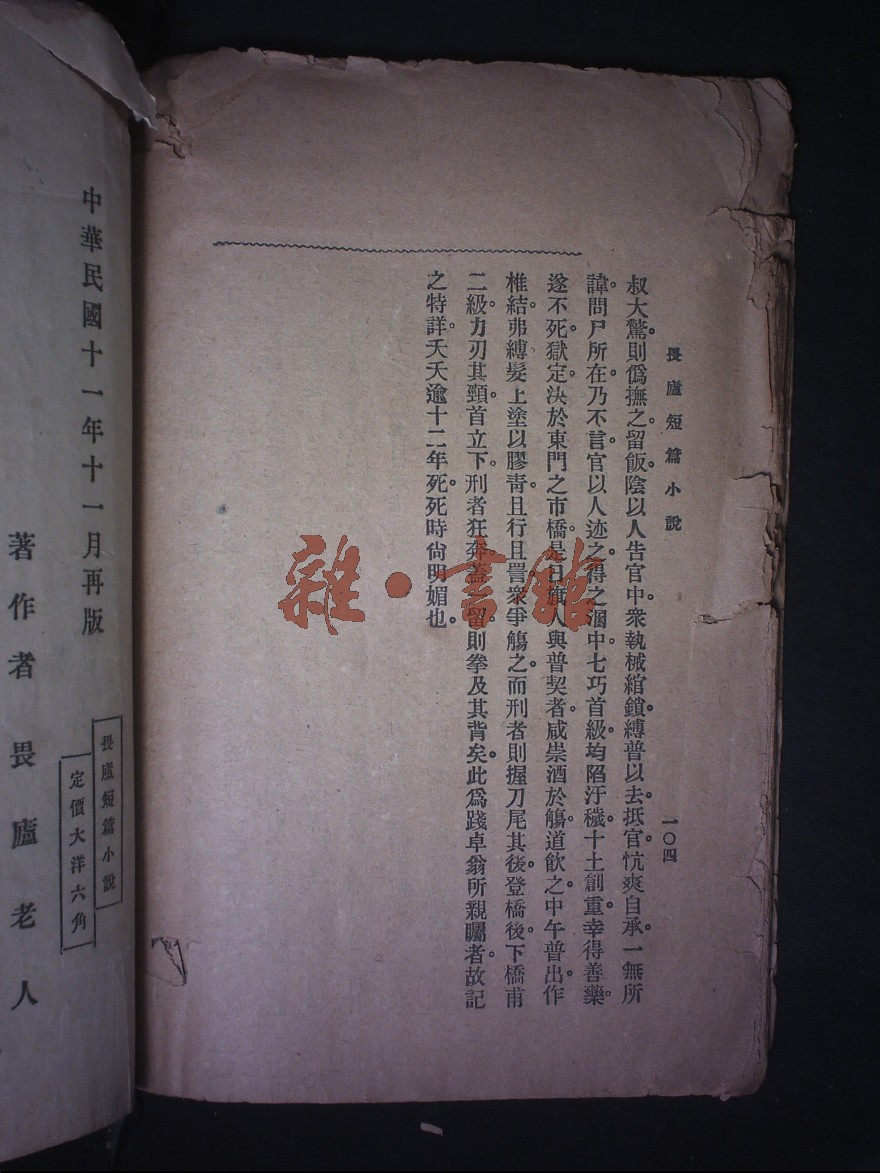 畏廬短篇小說
一〇四
叔大驚。則僞撫之。留飯。陰以人告官中。衆執械綰鎖縛普以去。抵官。忼爽自承。一無所
諱。問尸所在。乃不言。官以人迹之。得之溷中。七巧首級。均陷汙穢。十土創重。幸得善藥。
遂不死。獄定。決於東門之市橋。是日旗人與普契者。咸崇酒於觴。道飲之。中午普出。作
椎結。弗縛。髮上塗以膠青。且行且詈。衆爭觴之。而刑者則握刀尾其後。登橋後。下橋甫
二級。力刃其頸。首立下。刑者狂奔。蓋留則拳及其背矣。此爲踐卓翁所親矚者。故記
之特詳。夭夭逾十二年死。死時尙明媚也。
中華民國十一年十一月再版
畏廬短篇小說
定價大洋六角
著作者畏廬老人
雜·書館